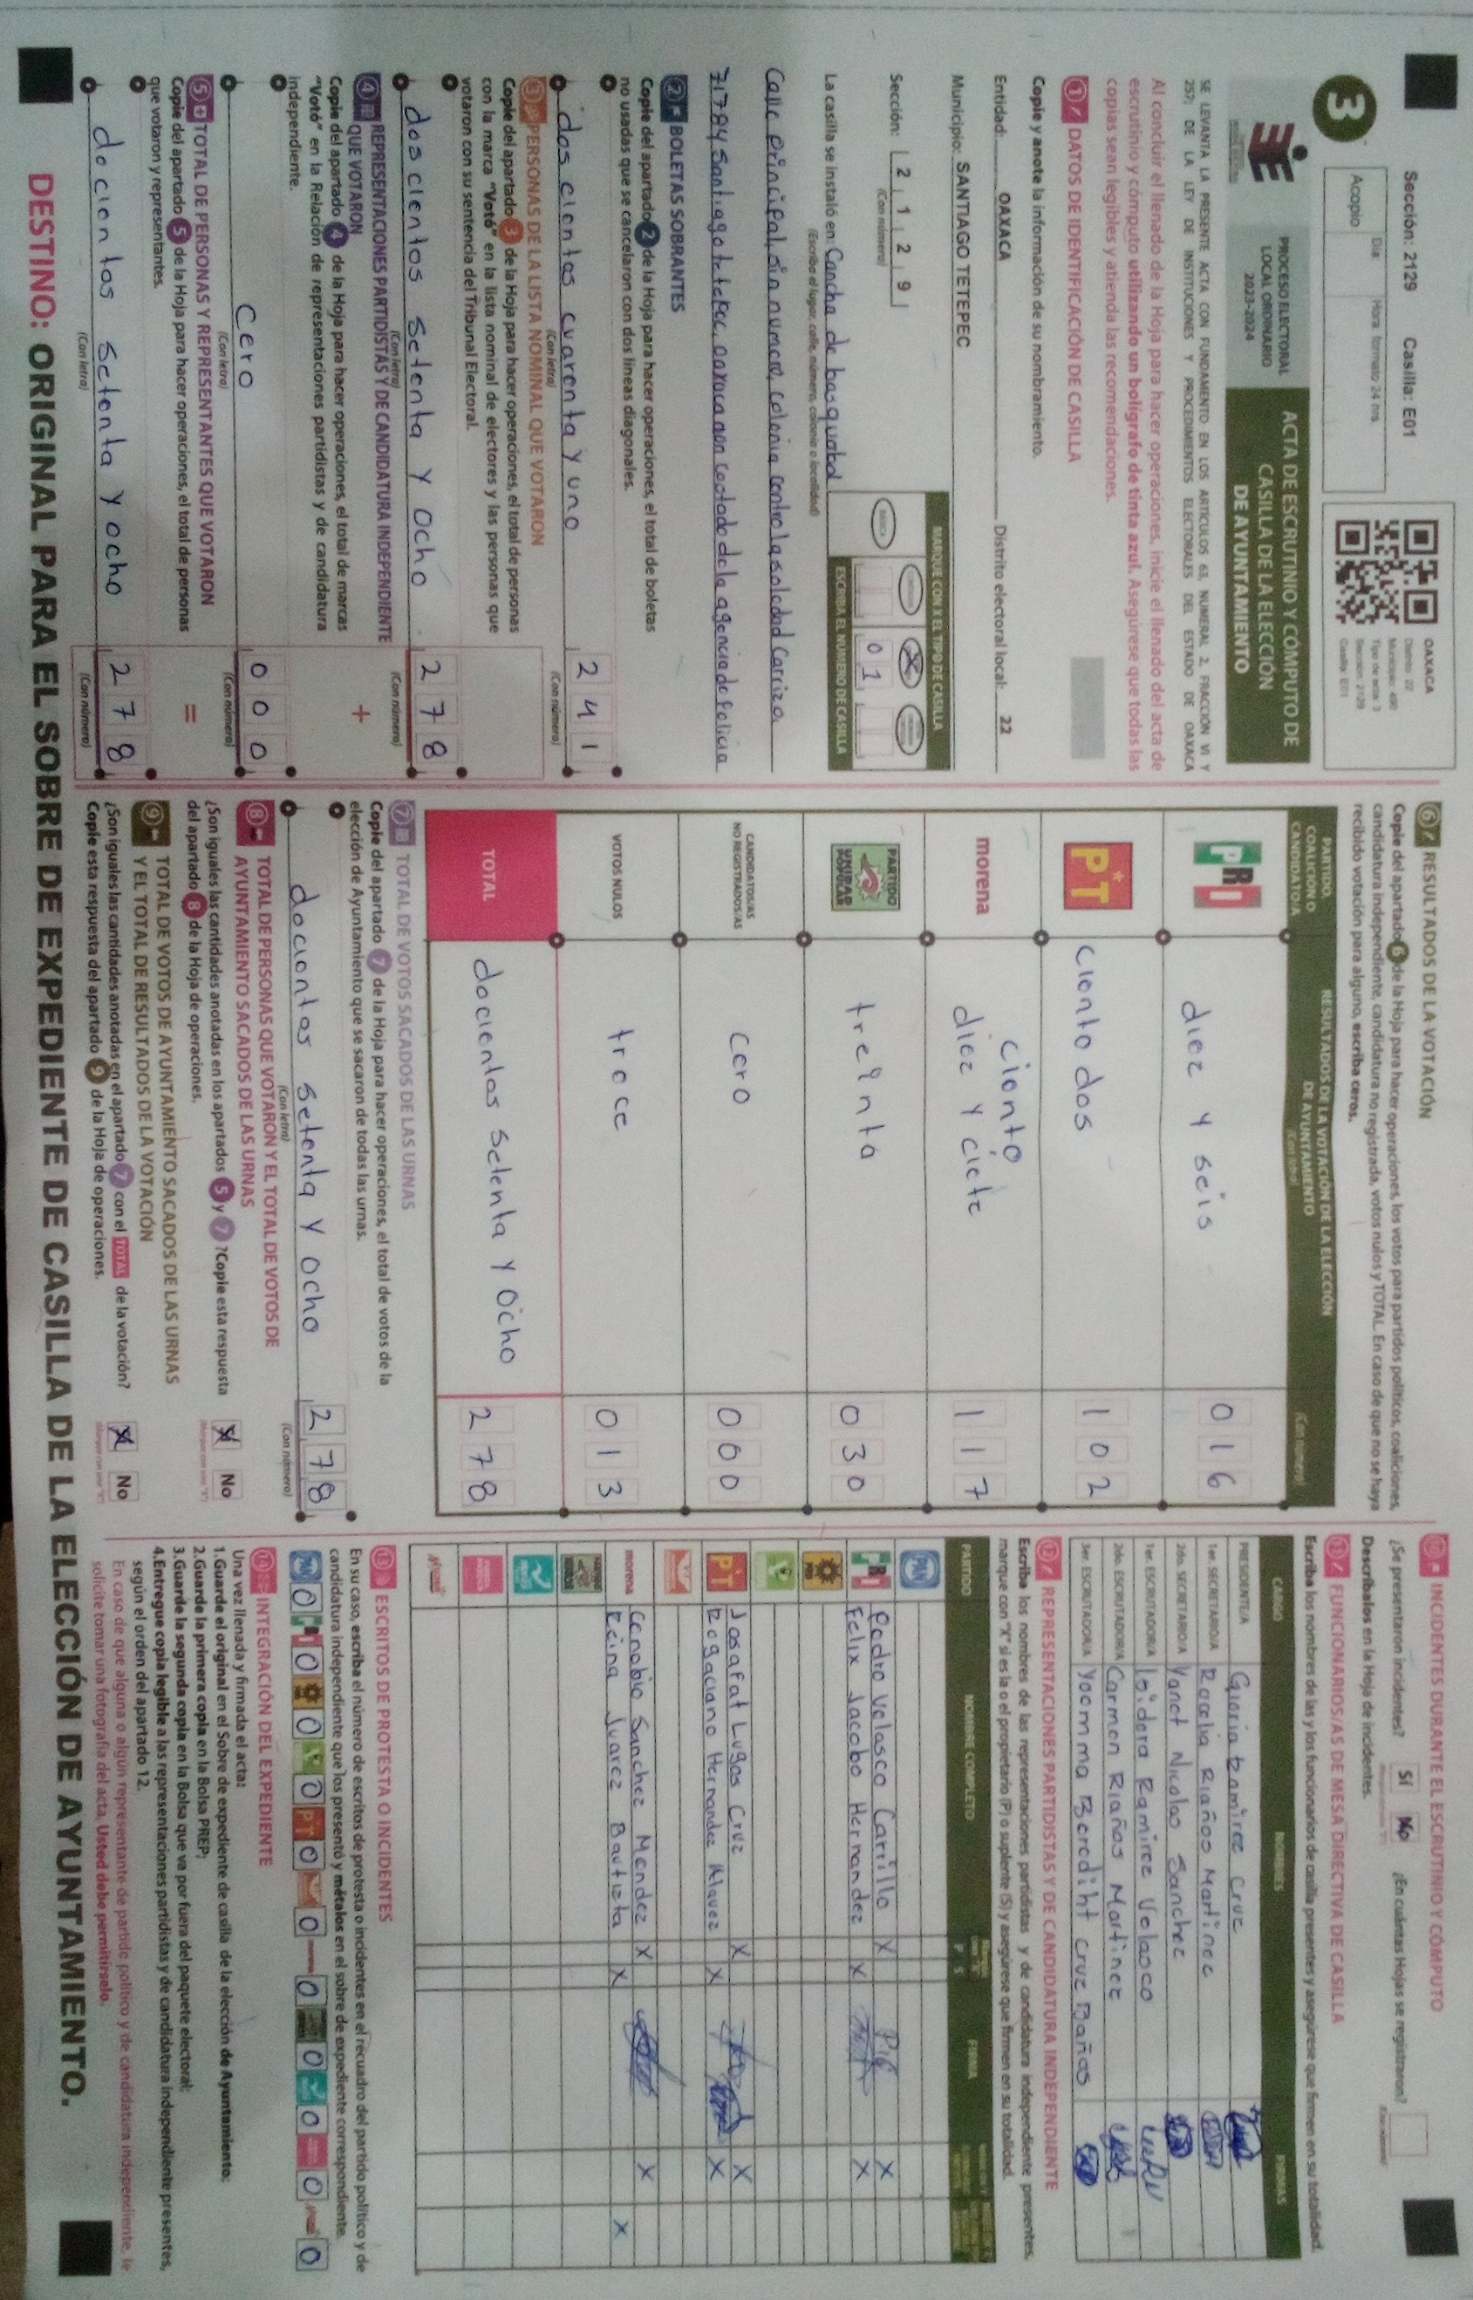 Sección: 2129 Casilla: E01
3
Día Hora formato 24 hrs
Acopio
OAXACA
Distrito: 22
Municipio: 490
Tipo de acta: 3
Sección: 2129
Casilla: E01
PROCESO ELECTORAL
LOCAL ORDINARIO
2023-2024
ACTA DE ESCRUTINIO Y CÓMPUTO DE
CASILLA DE LA ELECCIÓN
DE AYUNTAMIENTO
SE LEVANTA LA PRESENTE ACTA CON FUNDAMENTO EN LOS ARTÍCULOS 63, NUMERAL 2, FRACCIÓN VI Y
257; DE LA LEY DE INSTITUCIONES Y PROCEDIMIENTOS ELECTORALES DEL ESTADO DE OAXACA
Al concluir el llenado de la Hoja para hacer operaciones, inicie el llenado del acta de
escrutinio y cómputo utilizando un bolígrafo de tinta azul. Asegúrese que todas las
copias sean legibles y atienda las recomendaciones.
1 DATOS DE IDENTIFICACIÓN DE CASILLA
Copie y anote la información de su nombramiento.
Entidad: OAXACA Distrito electoral local: 22
Municipio: SANTIAGO TETEPEC
MARQUE CON X EL TIPO DE CASILLA
Sección: 2 1 2 9
(Con número)
X
01
ESCRIBA EL NÚMERO DE CASILLA
La casilla se instaló en: Cancha de basquetbol
(Escriba el lugar, calle, número, colonia o localidad)
Calle principal, sin numero, colonia centro la soledad Carrizo
71784 Santiago tetepec, oaxaca aun costado de la agencia de Policia
2 BOLETAS SOBRANTES
Copie del apartado 2 de la Hoja para hacer operaciones, el total de boletas
no usadas que se cancelaron con dos líneas diagonales.
dos cientos cuarenta y uno 2 4 1
(Con letra) (Con número)
3 PERSONAS DE LA LISTA NOMINAL QUE VOTARON
Copie del apartado 3 de la Hoja para hacer operaciones, el total de personas
con la marca "Votó" en la lista nominal de electores y las personas que
votaron con su sentencia del Tribunal Electoral.
dos cientos setenta y ocho 2 7 8
(Con letra) (Con número)
4 REPRESENTACIONES PARTIDISTAS Y DE CANDIDATURA INDEPENDIENTE
QUE VOTARON +
Copie del apartado 4 de la Hoja para hacer operaciones, el total de marcas
"Votó" en la Relación de representaciones partidistas y de candidatura
independiente.
cero 0 0 0
(Con letra) (Con número)
5 TOTAL DE PERSONAS Y REPRESENTANTES QUE VOTARON =
Copie del apartado 5 de la Hoja para hacer operaciones, el total de personas
que votaron y representantes.
docientos setenta y ocho 2 7 8
(Con letra) (Con número)
6 RESULTADOS DE LA VOTACIÓN
Copie del apartado 6 de la Hoja para hacer operaciones, los votos para partidos políticos, coaliciones,
candidatura independiente, candidatura no registrada, votos nulos y TOTAL. En caso de que no se haya
recibido votación para alguno, escriba ceros.
PARTIDO,
COALICIÓN O
CANDIDATO/A
RESULTADOS DE LA VOTACIÓN DE LA ELECCIÓN
DE AYUNTAMIENTO
(Con letra) (Con número)
PRI diez y seis 0 1 6
PT ciento dos 1 0 2
morena ciento diez y ciete 1 1 7
PARTIDO UNIDAD POPULAR treinta 0 3 0
CANDIDATOS/AS
NO REGISTRADOS/AS cero 0 0 0
VOTOS NULOS trece 0 1 3
TOTAL docientos setenta y ocho 2 7 8
7 TOTAL DE VOTOS SACADOS DE LAS URNAS
Copie del apartado 7 de la Hoja para hacer operaciones, el total de votos de la
elección de Ayuntamiento que se sacaron de todas las urnas.
docientos setenta y ocho 2 7 8
(Con letra) (Con número)
8 TOTAL DE PERSONAS QUE VOTARON Y EL TOTAL DE VOTOS DE
AYUNTAMIENTO SACADOS DE LAS URNAS
¿Son iguales las cantidades anotadas en los apartados 5 y 7? Copie esta respuesta
del apartado 8 de la Hoja de operaciones. X No
9 TOTAL DE VOTOS DE AYUNTAMIENTO SACADOS DE LAS URNAS
Y EL TOTAL DE RESULTADOS DE LA VOTACIÓN
¿Son iguales las cantidades anotadas en el apartado 7 con el TOTAL de la votación?
Copie esta respuesta del apartado 9 de la Hoja de operaciones. X No
10 INCIDENTES DURANTE EL ESCRUTINIO Y CÓMPUTO
¿Se presentaron incidentes? Sí No ¿En cuántas Hojas se registraron?
Descríbalos en la Hoja de incidentes.
11 FUNCIONARIOS/AS DE MESA DIRECTIVA DE CASILLA
Escriba los nombres de las y los funcionarios de casilla presentes y asegúrese que firmen en su totalidad.
CARGO NOMBRES FIRMAS
PRESIDENTE/A Gloria Ramirez Cruz
1er. SECRETARIO/A Rocelia Riaños Martinez
2do. SECRETARIO/A Yanet Nicolas Sanchez
1er. ESCRUTADOR/A Isidora Ramirez Velasco
2do. ESCRUTADOR/A Carmen Riaños Martinez
3er. ESCRUTADOR/A Yoemma Berediht Cruz Baños
12 REPRESENTACIONES PARTIDISTAS Y DE CANDIDATURA INDEPENDIENTE
Escriba los nombres de las representaciones partidistas y de candidatura independiente presentes,
marque con "X" si es la o el propietario (P) o suplente (S) y asegúrese que firmen en su totalidad.
PARTIDO NOMBRE COMPLETO P S FIRMA
PAN
PRI Pedro Velasco Carrillo X X
Felix Jacobo Hernandez X X
PRD
PT Josafat Lugos Cruz X X
Rogaciano Hernandez X X
morena Cenobio Sanchez Mendez X X
Reina Juarez Bautista X X
13 ESCRITOS DE PROTESTA O INCIDENTES
En su caso, escriba el número de escritos de protesta o incidentes en el recuadro del partido político y de
candidatura independiente que los presentó y métalos en el sobre de expediente correspondiente.
PAN 0 PRI 0 0 0 PT 0 0 0 0 0 0 0
14 INTEGRACIÓN DEL EXPEDIENTE
Una vez llenada y firmada el acta:
1. Guarde el original en el Sobre de expediente de casilla de la elección de Ayuntamiento;
2. Guarde la primera copia en la Bolsa PREP;
3. Guarde la segunda copia en la Bolsa que va por fuera del paquete electoral;
4. Entregue copia legible a las representaciones partidistas y de candidatura independiente presentes,
según el orden del apartado 12.
En caso de que alguna o algún representante de partido político y de candidatura independiente, le
solicite tomar una fotografía del acta, Usted debe permitírselo.
DESTINO: ORIGINAL PARA EL SOBRE DE EXPEDIENTE DE CASILLA DE LA ELECCIÓN DE AYUNTAMIENTO.